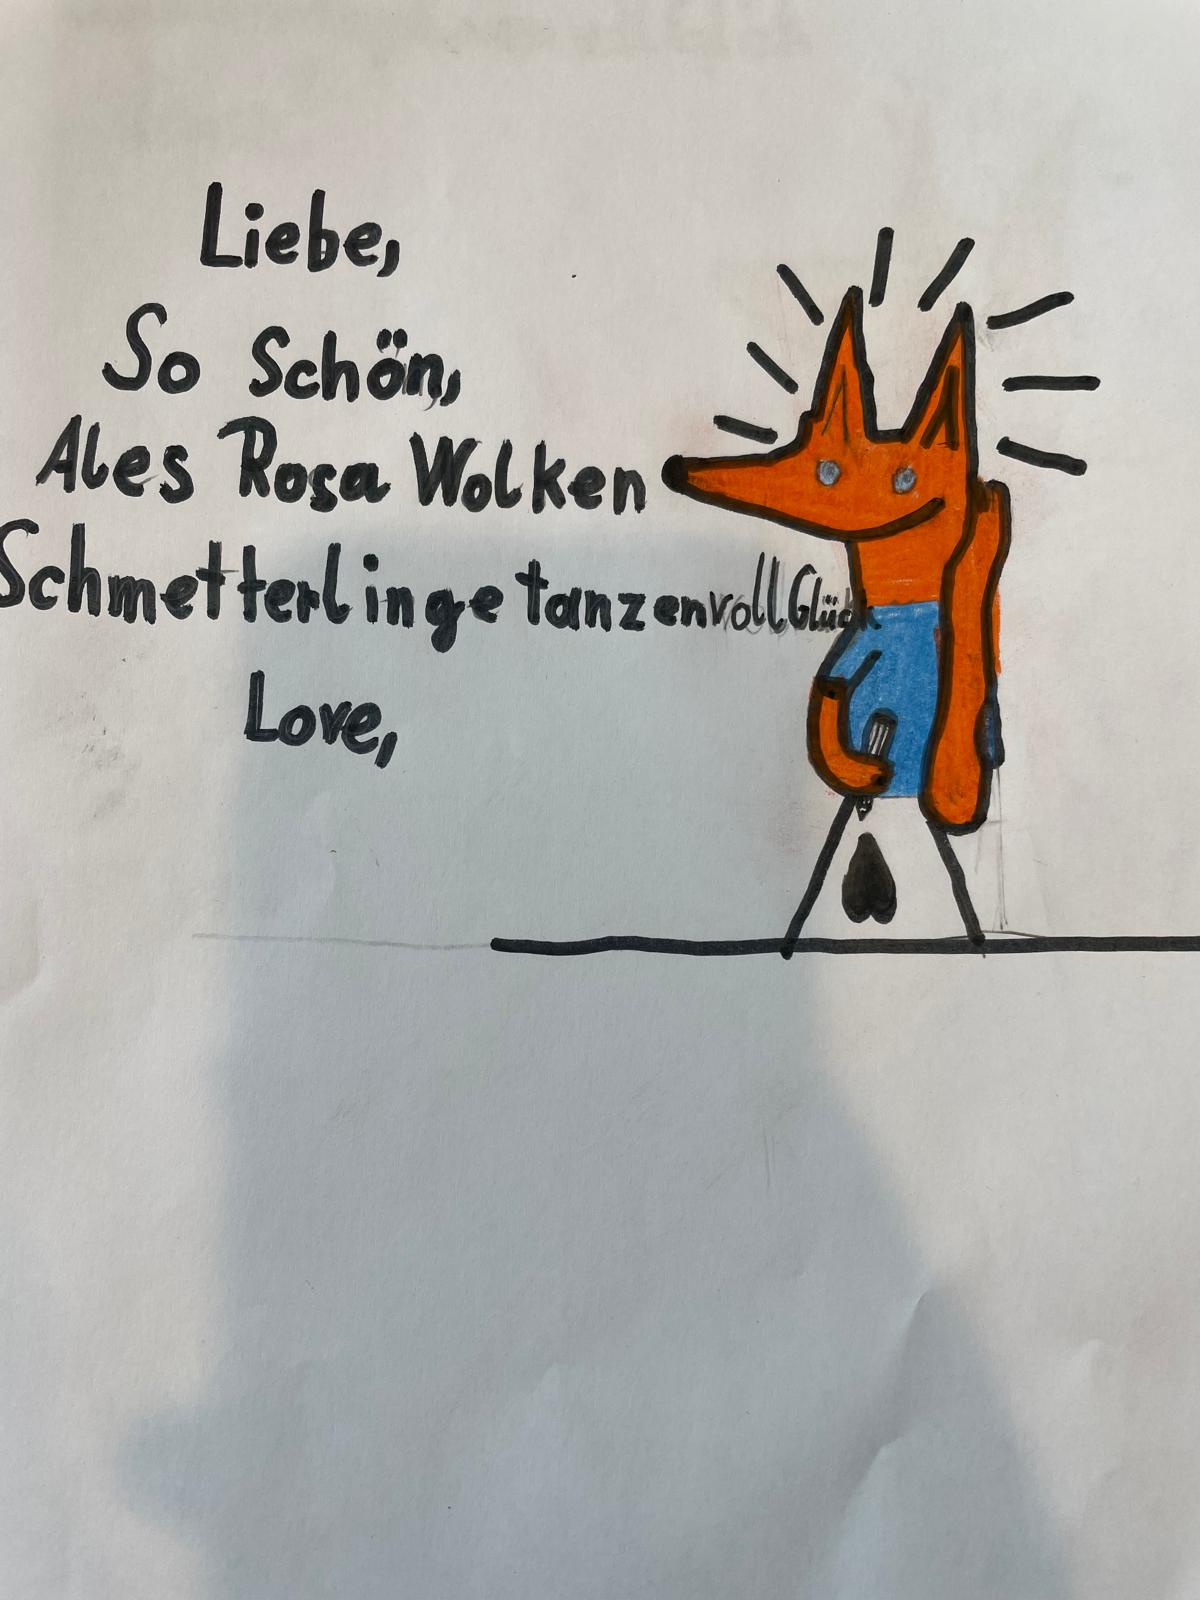 Liebe,
So Schön,
Ales Rosa Wolken
Schmetterlinge tanzen voll Glück
Love,